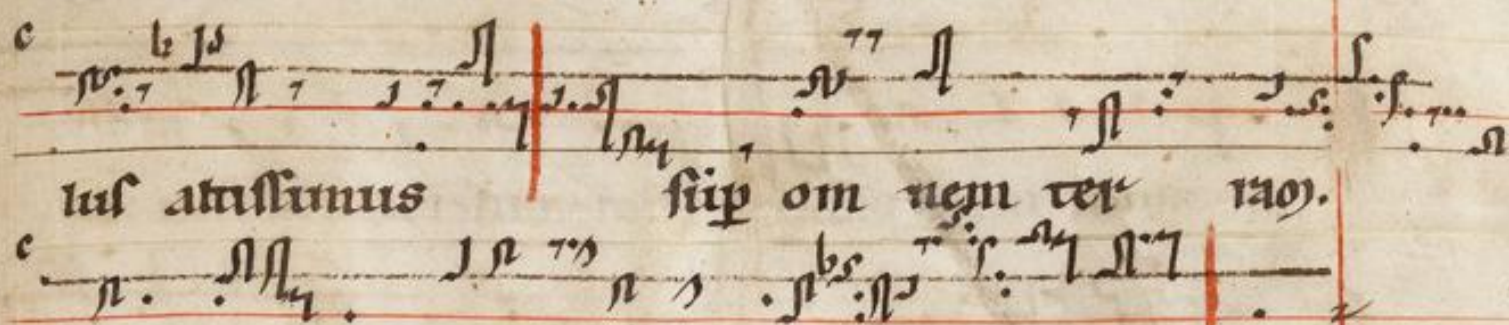 lus altissimus sup̱ om nem ter ram.